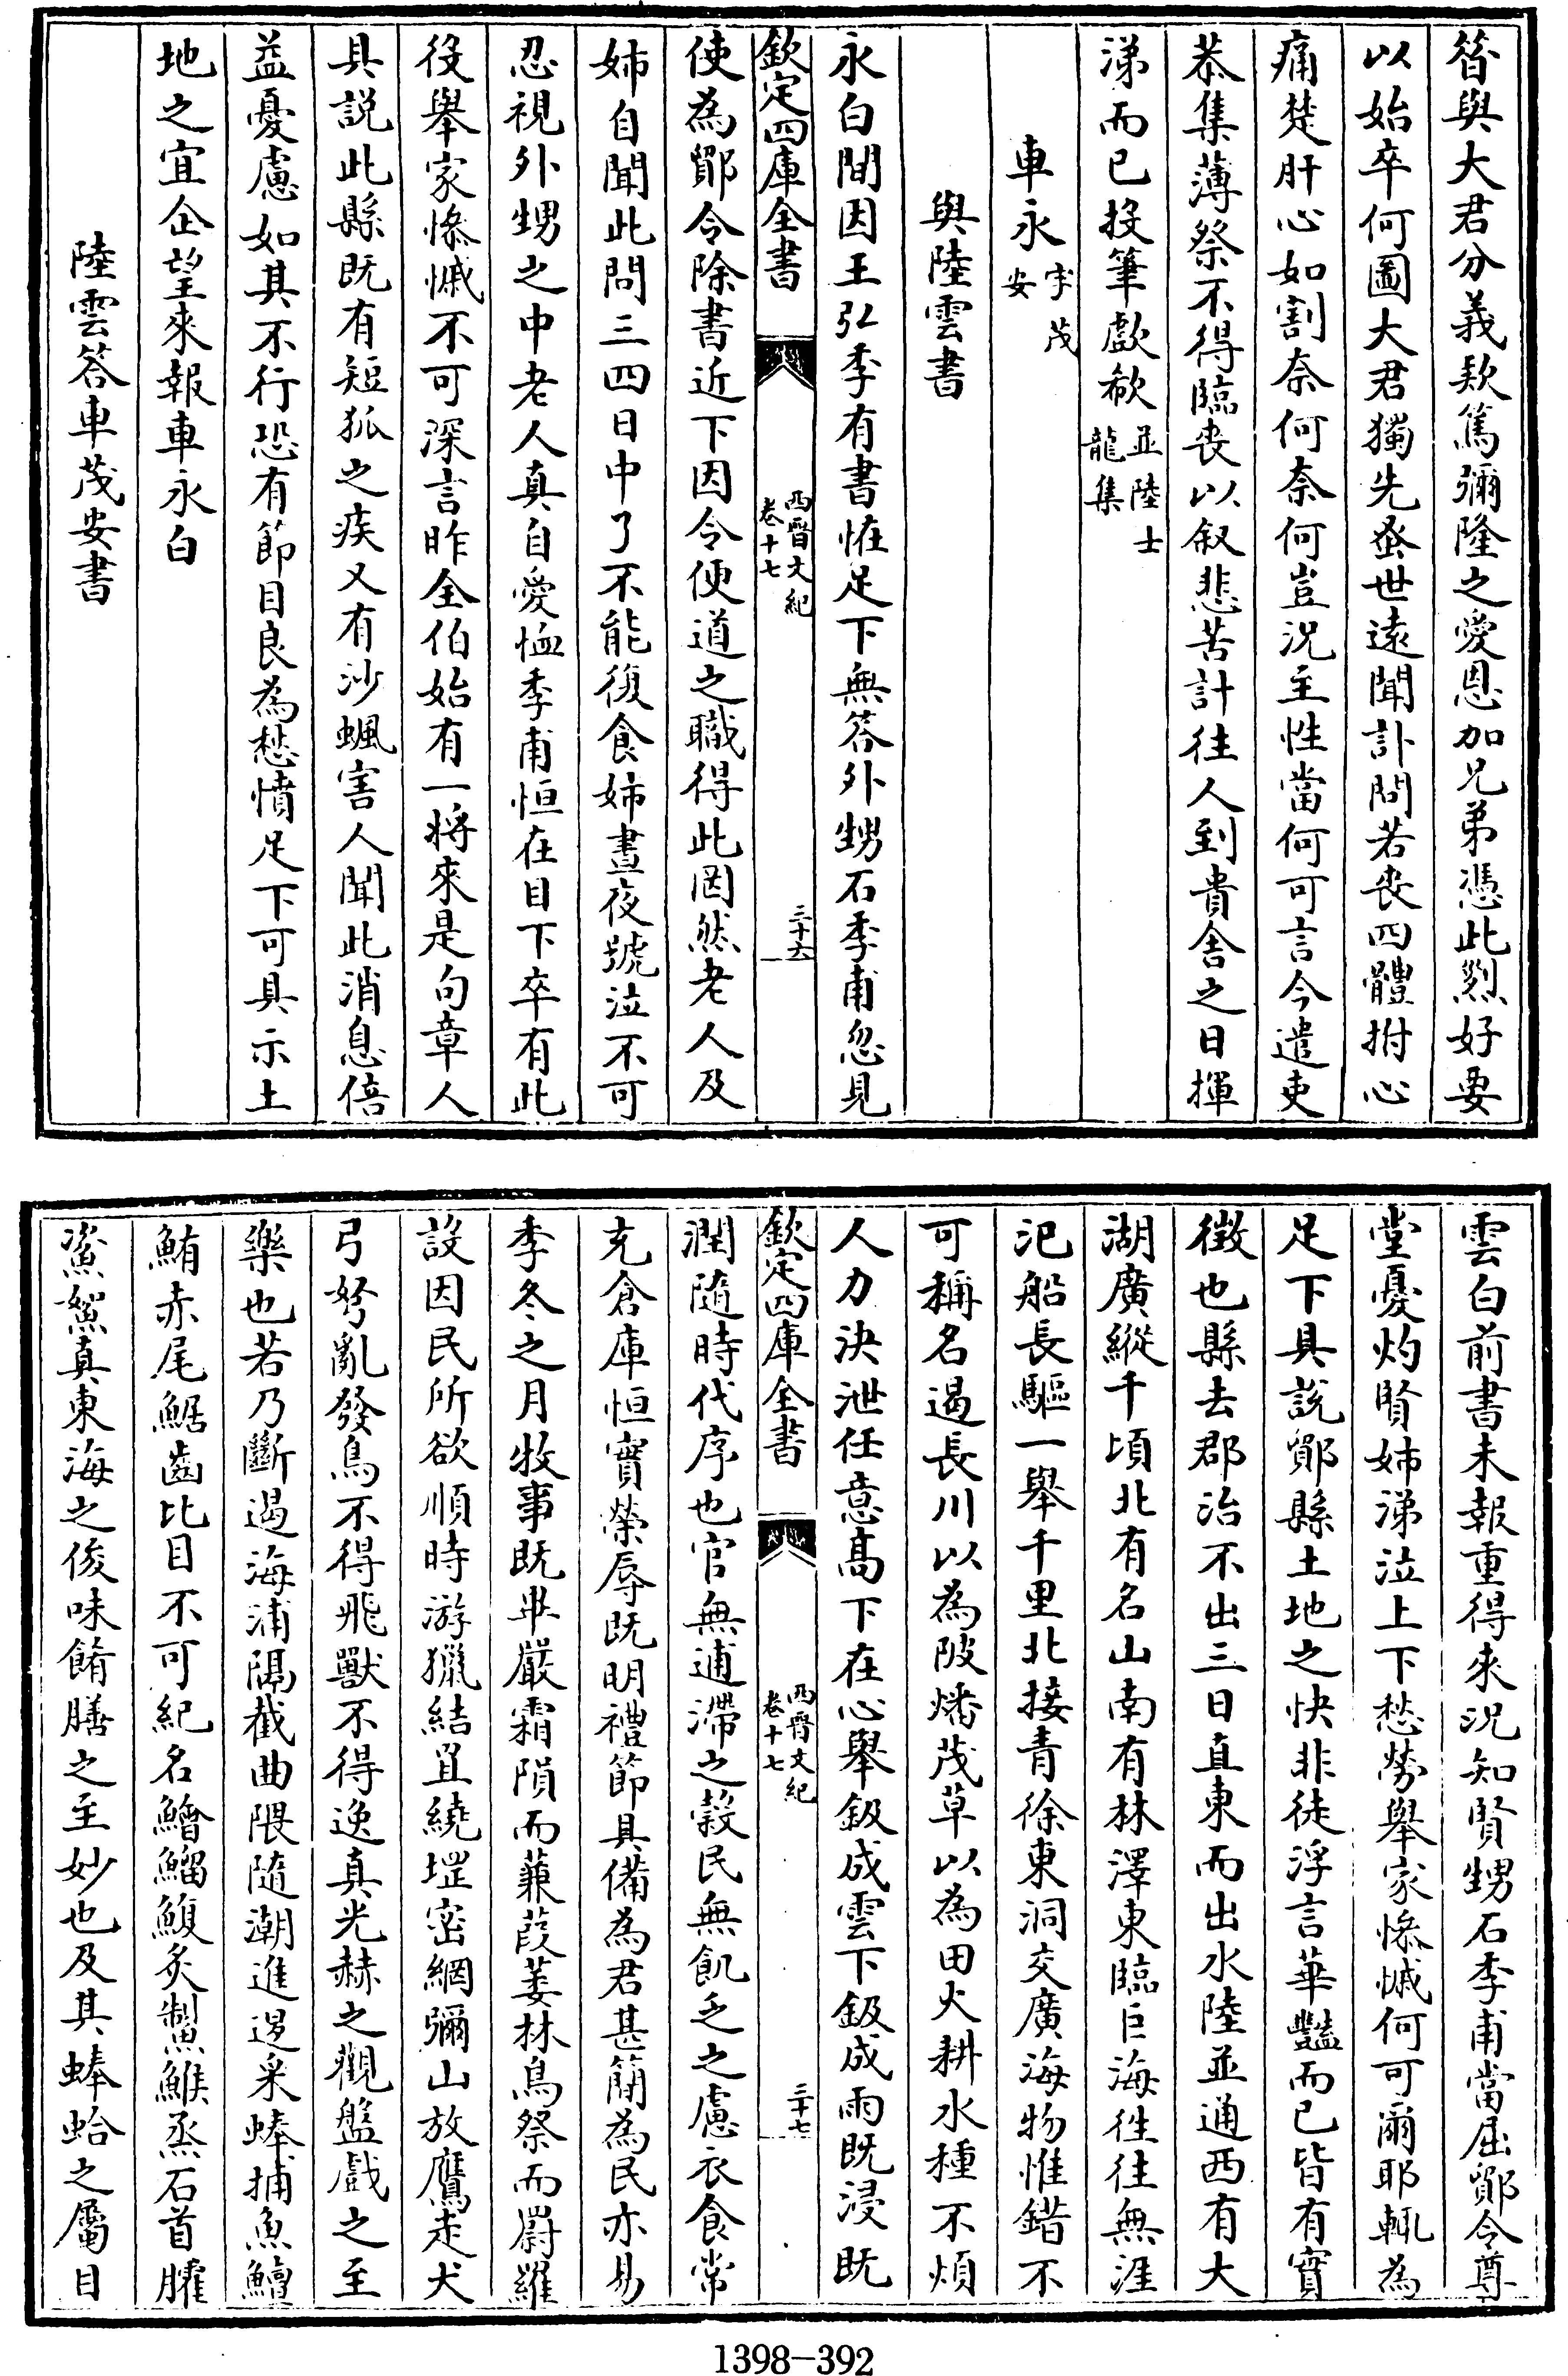 筓與大君分義欵篤彌隆之愛恩加兄弟憑此烈好要
以始卒何圖大君獨先登世遠聞訃問若喪四體拊心
痛楚肝心如割奈何奈何豈況至性當何可言今遣吏
恭集薄祭不得臨喪以叙悲苦計往人到貴舍之日揮
涕而已投筆歔欷並陸士龍集
車永字茂安
與陸雲書
永白間因王弘季有書恠足下無答外甥石季甫忽見
欽定四庫全書 西晉文紀 卷十七 三十六
使為鄮令除書近下因令便道之職得此罔然老人及
姊自聞此問三四日中了不能復食姊晝夜號泣不可
忍視外甥之中老人真自愛恤季甫恒在目下卒有此
役舉家慘慽不可深言昨全伯始有一將來是句章人
具説此縣既有短狐之疾又有沙蝨害人聞此消息倍
益憂慮如其不行恐有節目良為愁憤足下可具示土
地之宜企望來報車永白
陸雲答車茂安書
雲白前書未報重得來況知賢甥石季甫當屈鄮令尊
堂憂灼賢姊涕泣上下愁勞舉家慘慽何可爾耶輒為
足下具説鄮縣土地之快非徒浮言華豔而已皆有實
徴也縣去郡治不出三日直東而出水陸並通西有大
湖廣縱千頃北有名山南有林澤東臨巨海往往無涯
汜船長驅一舉千里北接青徐東洞交廣海物惟錯不
可稱名遏長川以為陂燔茂草以為田火耕水種不煩
人力決泄任意高下在心舉鈒成雲下鈒成雨既浸既
欽定四庫全書 西晉文紀 卷十七 三十七
潤隨時代序也官無逋滯之穀民無飢乏之慮衣食常
充倉庫恒實榮辱既明禮節具備為君甚簡為民亦易
季冬之月牧事既畢嚴霜隕而蒹葭萎林鳥祭而罻羅
設因民所欲順時游獵結罝繞堽密網彌山放鷹走犬
弓弩亂發鳥不得飛獸不得逸真光赫之觀盤戲之至
樂也若乃斷遏海浦隔截曲隈隨潮進退采蜯捕魚鱣
鮪赤尾鋸齒比目不可紀名鱠鰡鰒炙䱥鯸烝石首臛
鯊鮆真東海之俊味餚膳之至妙也及其蜯蛤之屬目
1398-392